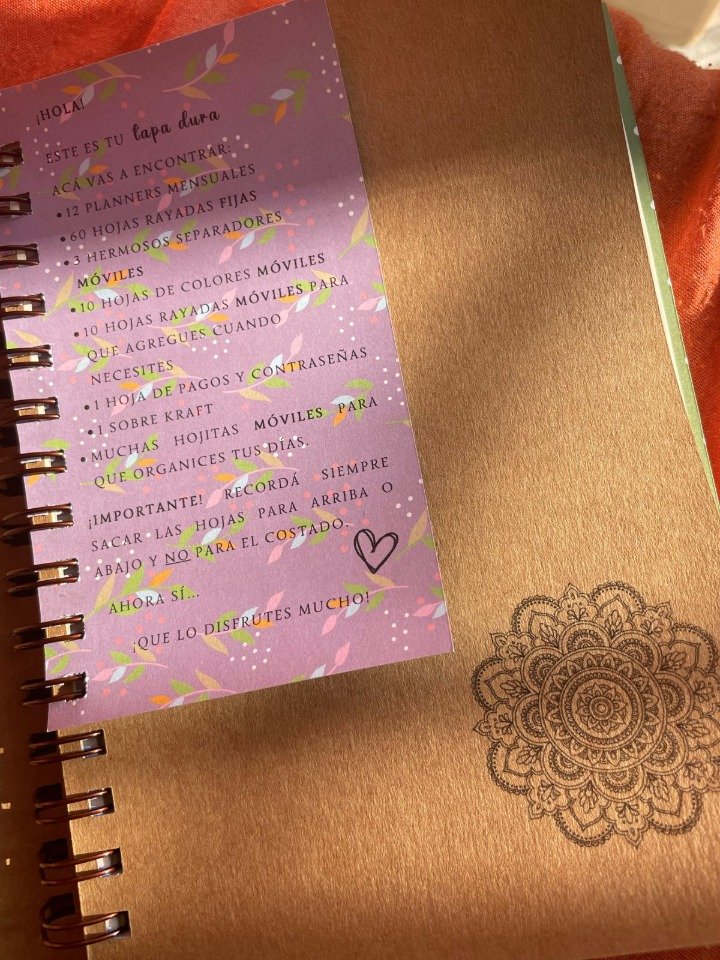 ¡HOLA!
ESTE ES TU tapa dura
ACÁ VAS A ENCONTRAR:
•12 PLANNERS MENSUALES
•60 HOJAS RAYADAS FIJAS
•3 HERMOSOS SEPARADORES
MÓVILES
•10 HOJAS DE COLORES MÓVILES
•10 HOJAS RAYADAS MÓVILES PARA
QUE AGREGUES CUANDO
NECESITES
•1 HOJA DE PAGOS Y CONTRASEÑAS
•1 SOBRE KRAFT
•MUCHAS HOJITAS MÓVILES PARA
QUE ORGANICES TUS DÍAS.
¡IMPORTANTE! RECORDÁ SIEMPRE
SACAR LAS HOJAS PARA ARRIBA O
ABAJO Y NO PARA EL COSTADO.
AHORA SÍ...
¡QUE LO DISFRUTES MUCHO!